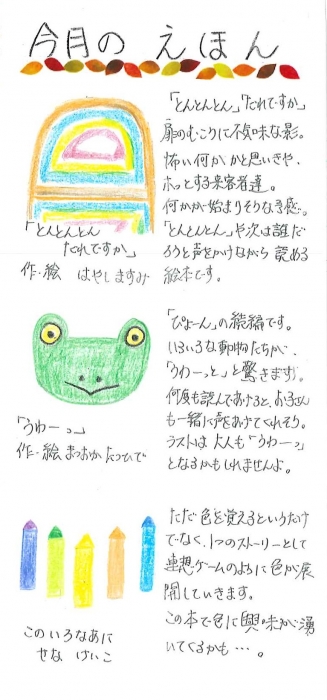 今月の えほん
「とんとんとん」「だれですか」
扉のむこうに不気味な影。
怖い何か、かと思いきや、
ホッとする来客者達。
何かが始まりそうな予感。
「とんとんとん」や次は誰だ
ろうと声をかけながら 読める
絵本です。
「とんとんとん
だれですか」
作・絵 はやしますみ
「ぴょーん」の続編です。
いろいろな動物たちが、
「うわーっと」と驚きます。
何度も読んであげると、お子さん
も一緒に声をあげてくれそう。
ラストは大人も「うわーっ」
となるかもしれませんよ。
「うわーっ」
作・絵 まつおかたつひで
ただ色を覚えるというだけ
でなく、1つのストーリーとして
連想ゲームのように色が展
開していきます。
この本で色に興味が湧
いてくるかも…。
このいろなあに
せな けいこ